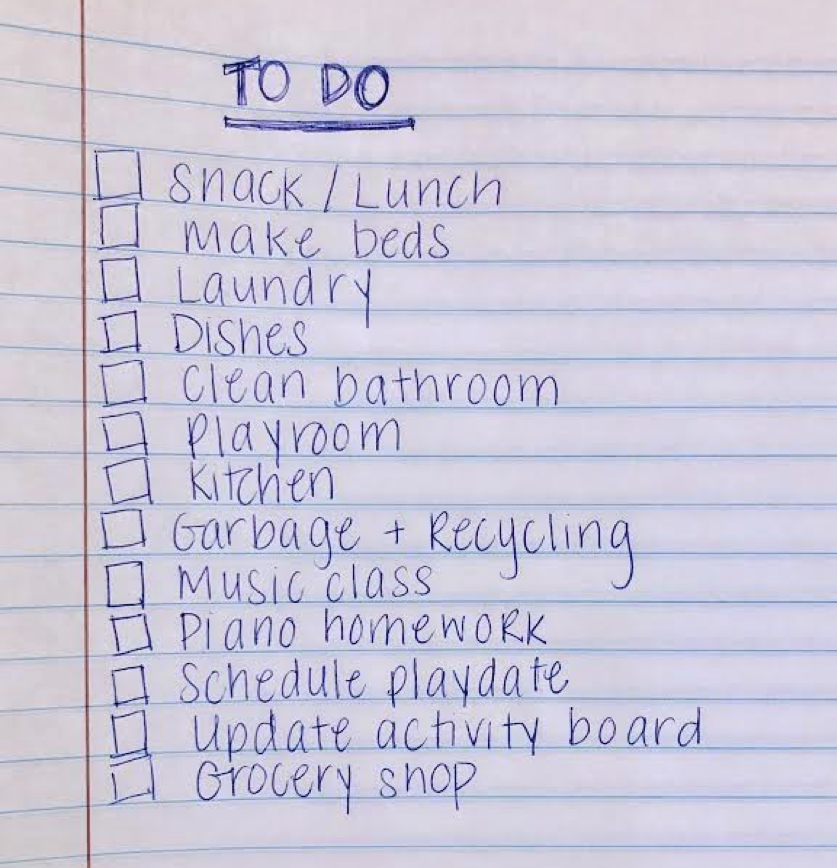 TO DO
Snack / Lunch
Make beds
Laundry
Dishes
Clean bathroom
Playroom
Kitchen
Garbage + Recycling
Music class
Piano homework
Schedule playdate
Update activity board
Grocery shop